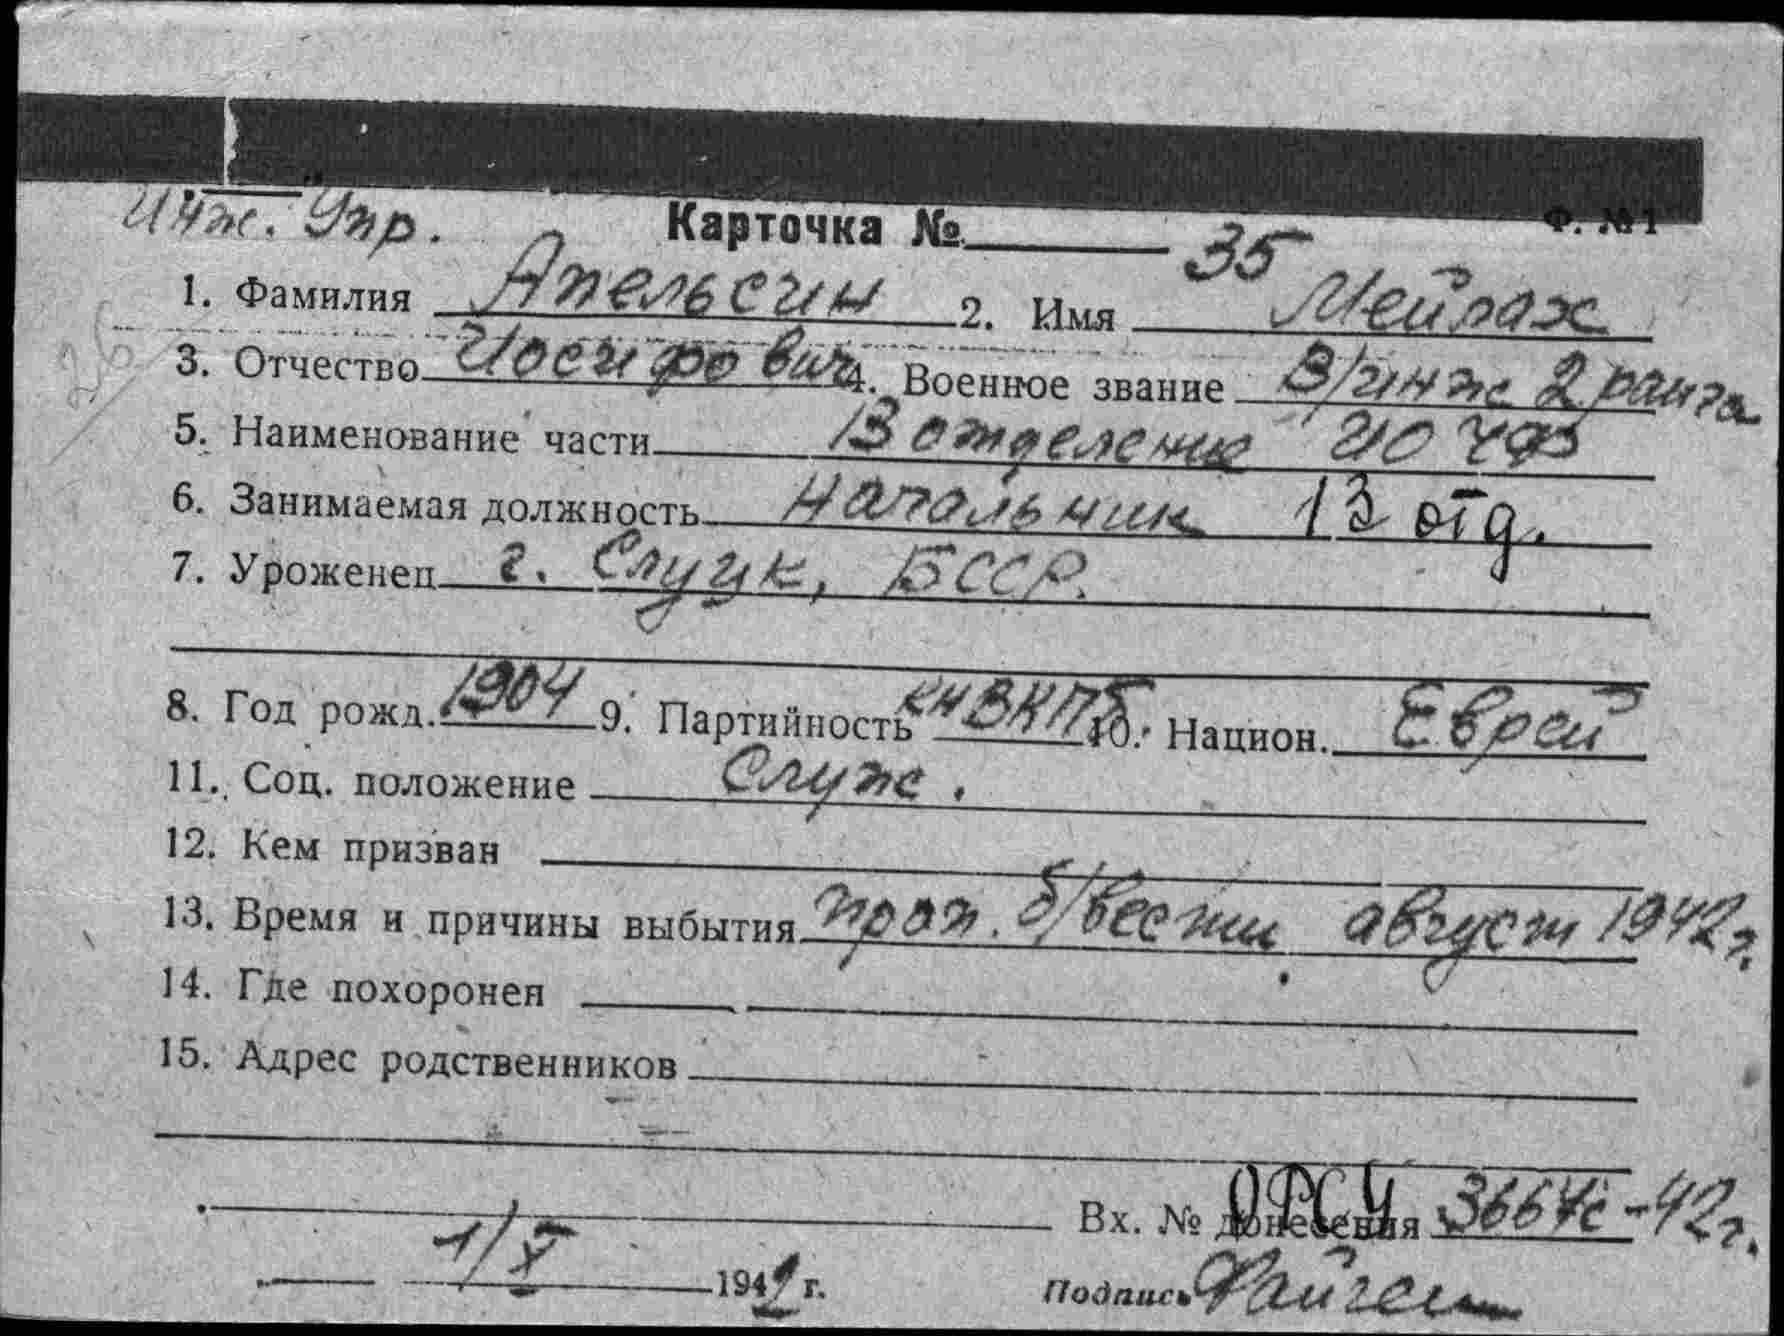 Инж. Упр.
Ф. №1
Карточка № 35
1. Фамилия Апельсин 2. Имя Мейлах
3. Отчество Иосифович 4. Военное звание В/инж 2 ранга
5. Наименование части 13 отделение ИО ЧФ
6. Занимаемая должность начальник 13 отд.
7. Уроженец г. Слуцк, БССР.
8. Год рожд. 1904 9. Партийность кн ВКПб 10. Национ. Еврей
11. Соц. положение Служ.
12. Кем призван
13. Время и причины выбытия проп. б/вести август 1942 г.
14. Где похоронен
15. Адрес родственников
Вх. № донесения ОРСУ 3667с-42 г.
1/X 1942 г. Подпись